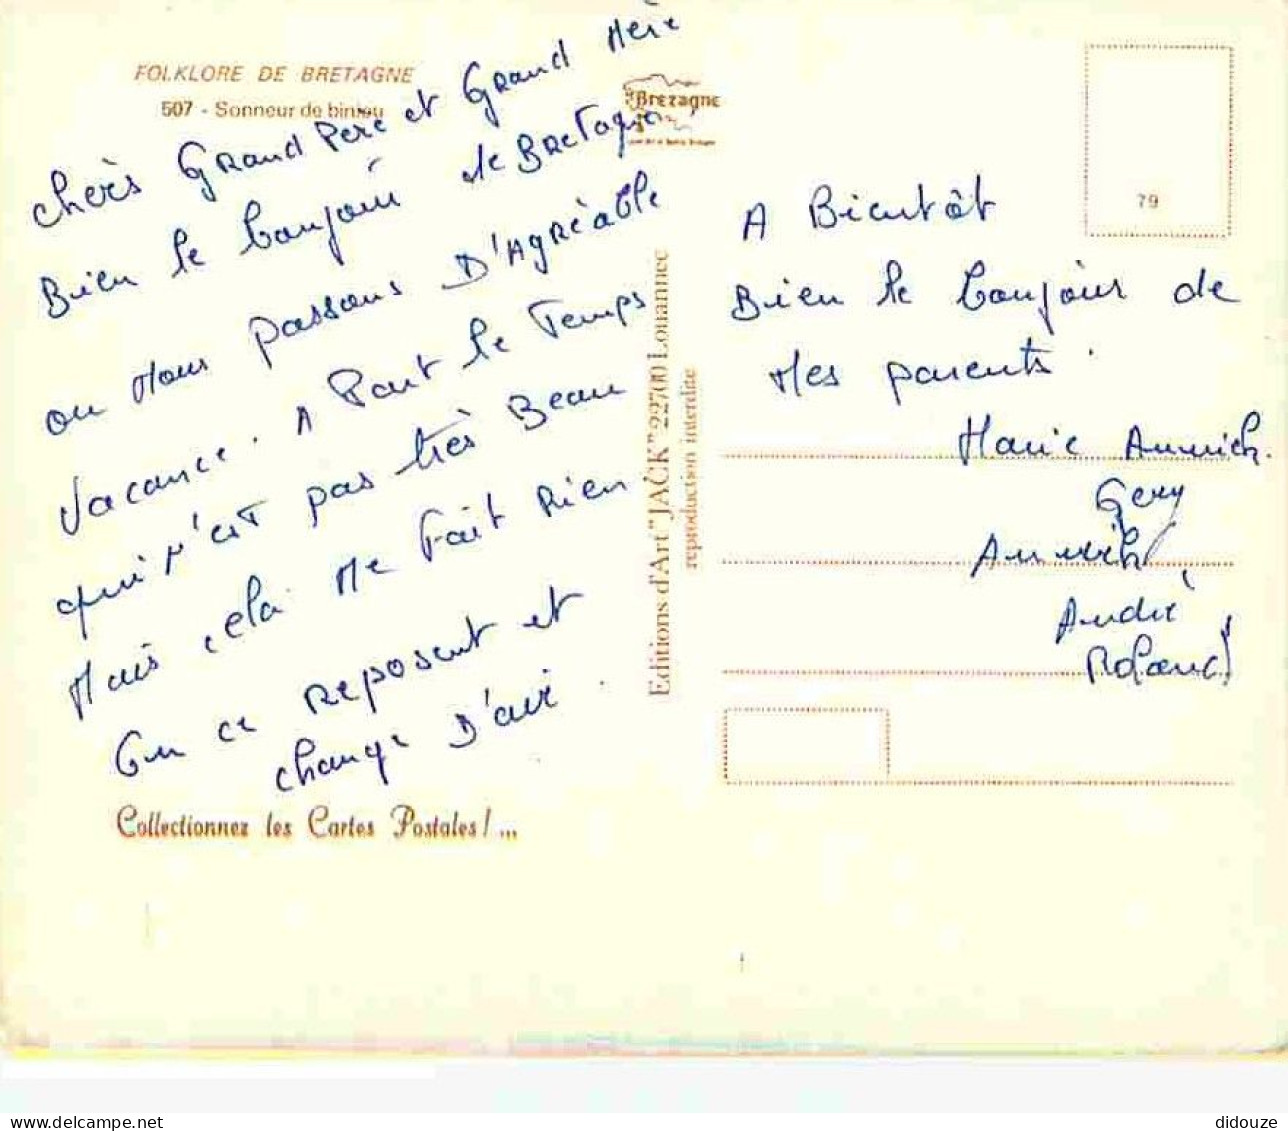 FOLKLORE DE BRETAGNE
507 - Sonneur de biniou
Chèrs Grand Père et Grand Mère
Bien le bonjour de Bretagne
ou nous passons D'Agréable
Vacance. A Part le Temps
qui n'est pas très Beau
Mais cela ne Fait Rien.
On ce reposent et
change D'air.
Collectionnez les Cartes Postales!...
Bretagne
Editions d'Art "JACK" 22700 Louannec
reproduction interdite
79
A Bientôt
Bien le bonjour de
Mes parents.
Marie Annick.
Gery
Annick
André
Roland